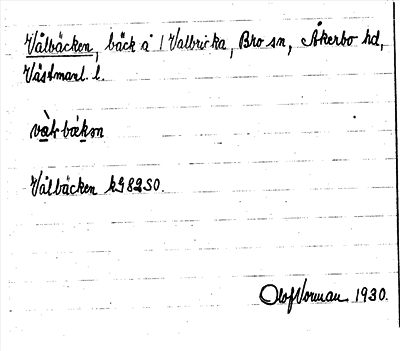 Vålbäcken, bäck å 1 Valbricka, Bro sn, Åkerbo hd,
Västmanl. l.
Vålbäcken kG 82SO.
Olof Norman 1930.